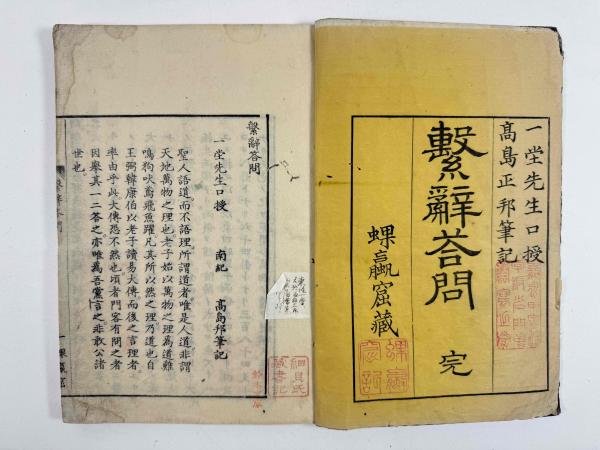 一堂先生口授
高島正邦筆記
繫辭荅問 完
蜾蠃窟藏
繫辭答問
一堂先生口授 南紀 高島邦筆記
聖人語道而不語理所謂道者唯是人道非謂
天地萬物之理也老子始以萬物之理為道雖
鳴狗吠鳶飛魚躍凡其所以然之理乃道也自
王弼韓康伯以老子讀易大傳而後之言理者
率由乎此大傳恐不然也頃者門客有問之者
因舉其一二答之亦唯為吾黨言之非敢公諸
世也
細貝氏
藏書記